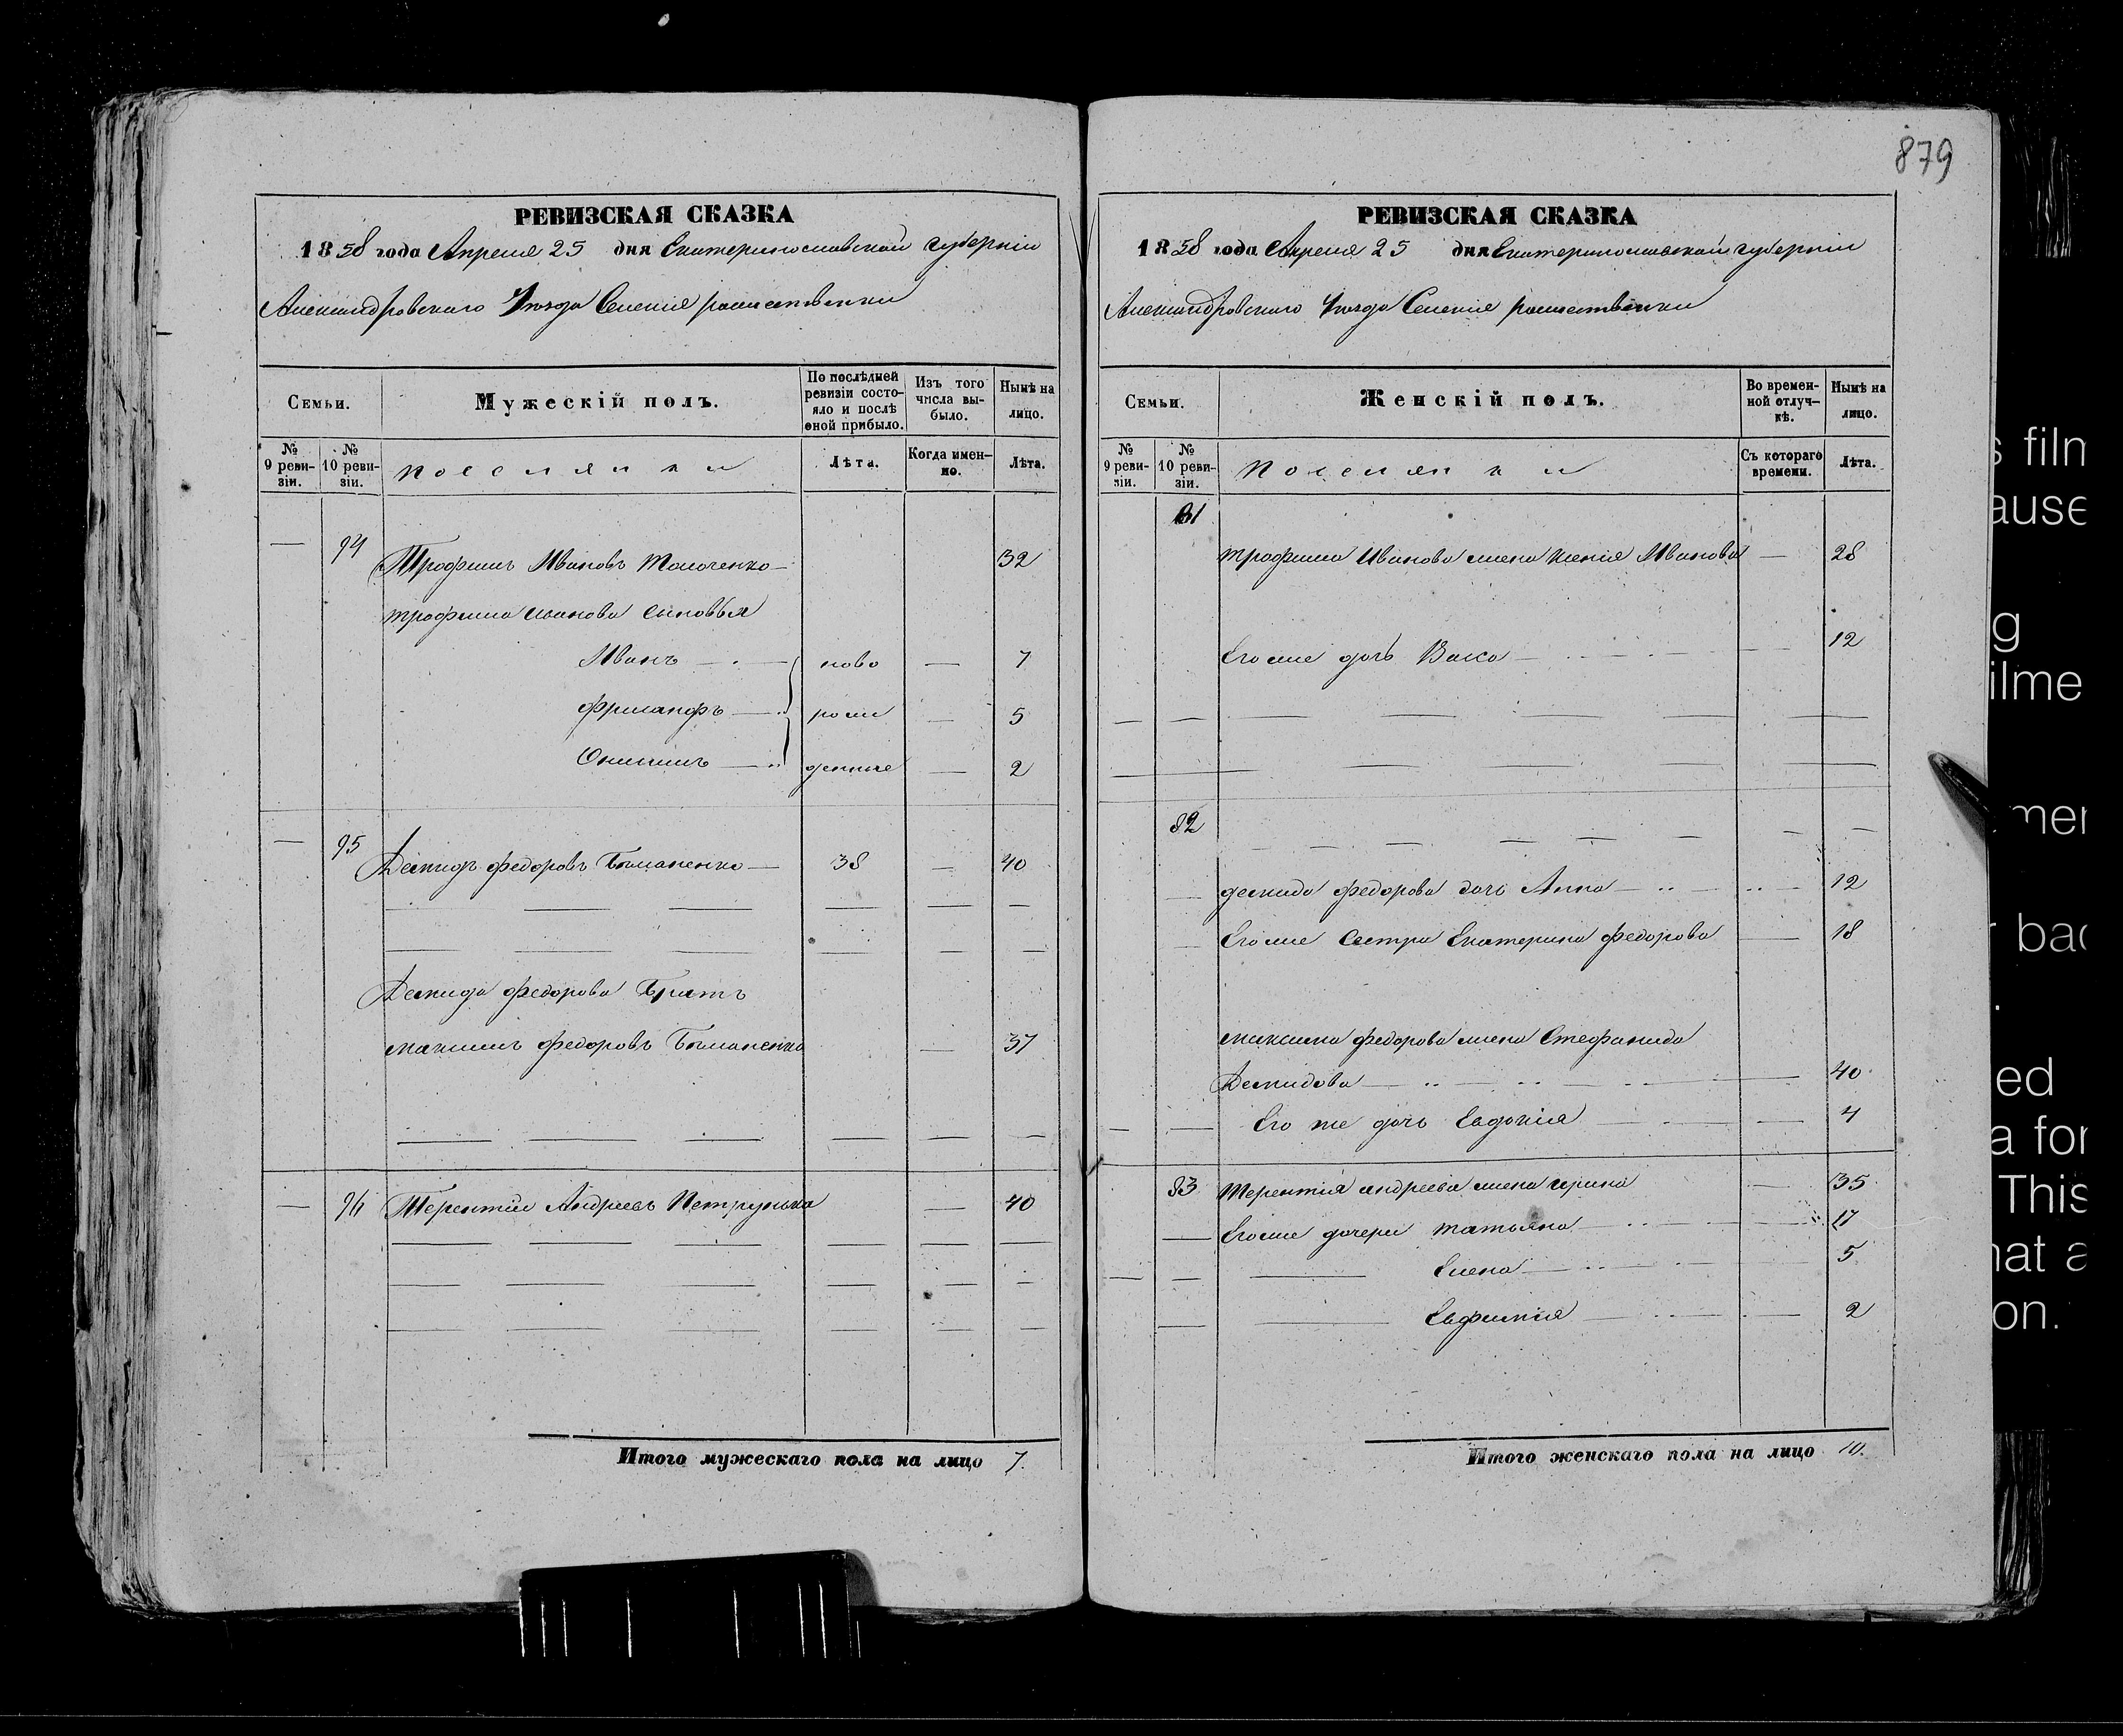 879
РЕВИЗСКАЯ СКАЗКА
1858 года Апреля 25 дня Екатеринославской губерніи
Александровскаго Уѣзда Селенія
Семьи.
Мужескій полъ.
По послѣдней ревизіи состояло и послѣ оной прибыло.
Изъ того числа выбыло.
Нынѣ на лицо.
№ 9 ревизіи.
№ 10 ревизіи.
Поселянки
Лѣта.
Когда именно.
Лѣта.
— 94 Трофимъ Ивановъ Толоченко — 32
трофима иванова сыновья
Иванъ — ново — 7
рож — 5
Онисимъ — денные — 2
— 95 Демидъ федоровъ — 38 — 40
Демида федорова Братъ
максимъ федоровъ — 37
— 96 Терентій Андреевъ Петрунька — 40
Итого мужескаго пола на лицо 7.
РЕВИЗСКАЯ СКАЗКА
1858 года Апреля 25 дня Екатеринославской губерніи
Александровскаго Уѣзда Селенія
Семьи.
Женскій полъ.
Во временной отлучкѣ.
Нынѣ на лицо.
№ 9 ревизіи.
№ 10 ревизіи.
Поселянки
Съ котораго времени.
Лѣта.
81
трофима Иванова жена Ксенія Иванова — 28
Егоже дочь Васса — 12
82
демида федорова дочь Анна — 12
Егоже Сестра Екатерина федорова — 18
максима федорова жена Стефанида
Демидова — 40
Его же дочь Евдокія — 4
83 Терентія андреева жена ирина — 35
Егоже дочери татьяна — 17
Елена — 5
Евфимія — 2
Итого женскаго пола на лицо 10.